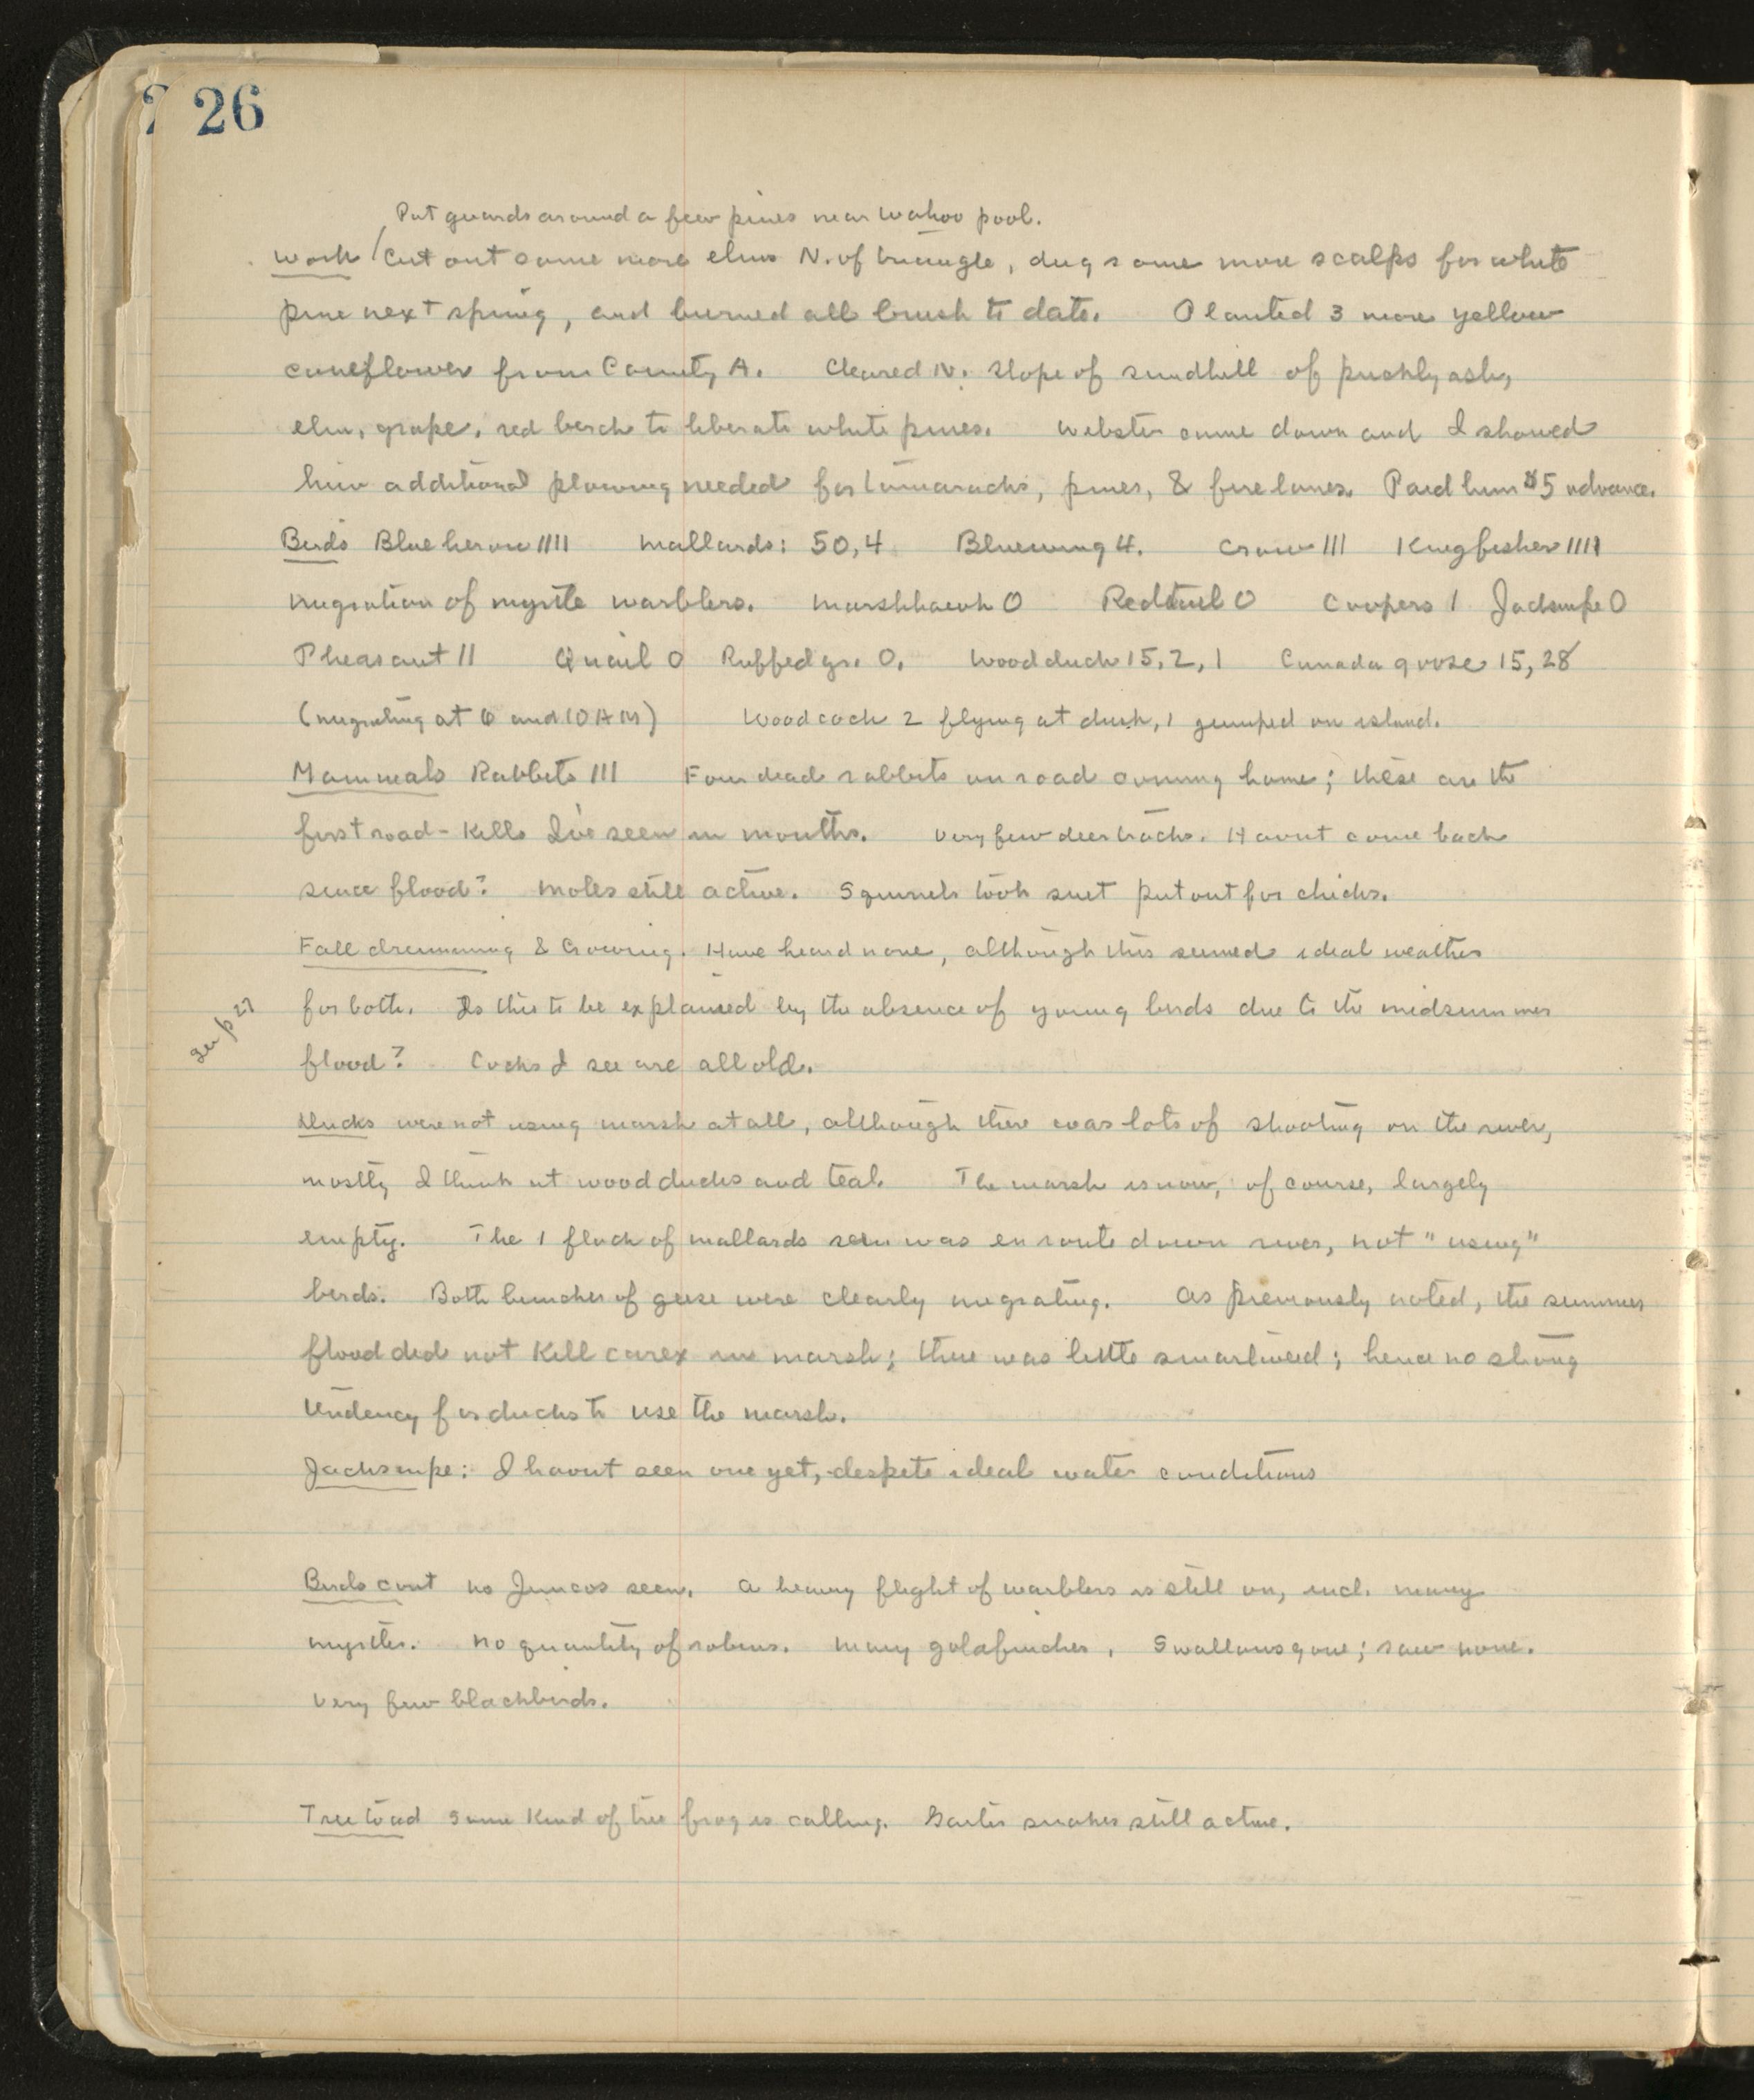 26
Put guards around a few pines near Wahoo pool.
Work / Cut out some more elms N. of triangle, dug some more scalps for white
pine next spring, and burned all brush to date. Planted 3 more yellow
coneflower from County A. Cleared N. slope of sandhill of prickly ash,
elm, grape, red birch to liberate white pines. Webster came down and I showed
him additional plowing needed for tamaracks, pines, & fire lanes. Paid him $5 advance.
Birds Blue heron 1111 Mallards: 50, 4 Bluewing 4. Crow 111 Kingfisher 1111
migration of myrtle warblers. Marshhawk 0 Redtail 0 Coopers 1 Jacksnipe 0
Pheasant 11 Quail 0 Ruffed gr. 0. Wood duck 15, 2, 1 Canada goose 15, 28
(migrating at 6 and 10 AM) Woodcock 2 flying at dusk, 1 jumped on island.
Mammals Rabbits 111 Four dead rabbits on road coming home; these are the
first road-kills I've seen in months. Very few deer tracks. Havnt come back
since flood? Moles still active. Squirrels took suet put out for chicks.
Fall drumming & Crowing. Have heard none, although this seemed ideal weather
for both. Is this to be explained by the absence of young birds due to the midsummer
see p 27
flood? Cocks I see are all old.
Ducks were not using marsh at all, although there was lots of shooting on the river,
mostly I think at wood ducks and teal. The marsh is now, of course, largely
empty. The 1 flock of mallards seen was en route down river, not "using"
birds. Both bunches of geese were clearly migrating. As previously noted, the summer
flood did not kill carex in marsh; there was little smartweed; hence no strong
tendency for ducks to use the marsh.
Jacksnipe: I havnt seen one yet, despite ideal water conditions
Birds cont no Juncos seen. A heavy flight of warblers is still on, incl. many
myrtles. No quantity of robins. Many goldfinches. Swallows gone; saw none.
Very few blackbirds.
Tree toad Some kind of tree frog is calling. Garter snakes still active.